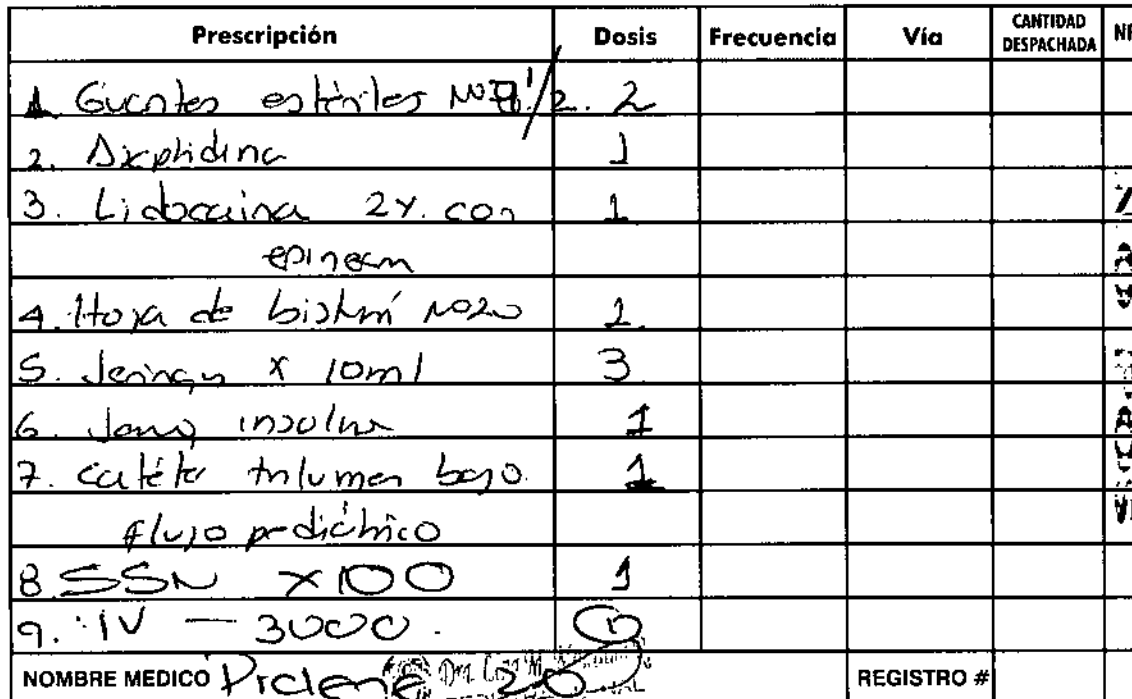 Prescripción Dosis Frecuencia Vía CANTIDAD DESPACHADA
1 Guantes estériles Nº 1/2. 2
2. Dixphidina 1
3. Lidocaina 2%. con 1
epinean
4. Hoja de bisturí Nº20 1.
5. Jeringa x 10ml 3
6. Jering insulina 1
7. catéter trilumen bajo 1
flujo pediátrico
8. SSN x100 1
9. IV — 3000.
NOMBRE MEDICO REGISTRO #